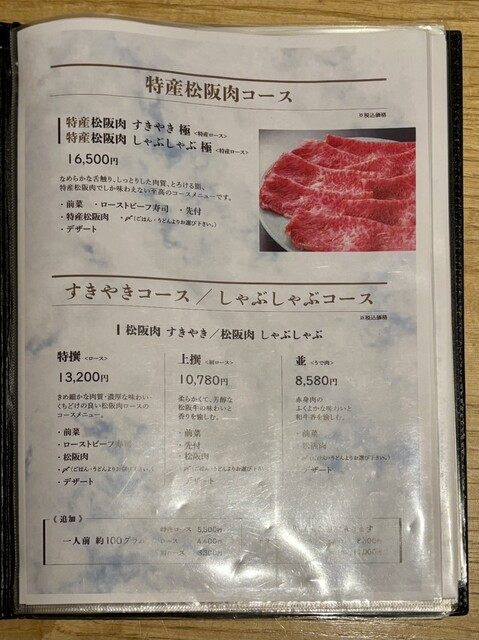 特産松阪肉コース
※税込価格
特産松阪肉 すきやき 極 <特産ロース>
特産松阪肉 しゃぶしゃぶ 極 <特産ロース>
16,500円
なめらかな舌触り、しっとりした肉質、とろける脂。
特産松阪肉でしか味わえない至高のコースメニューです。
・前菜 ・ローストビーフ寿司 ・先付
・特産松阪肉 ・〆(ごはん・うどんよりお選び下さい。)
・デザート
すきやきコース／しゃぶしゃぶコース
※税込価格
松阪肉 すきやき/松阪肉 しゃぶしゃぶ
特撰 <ロース>
13,200円
きめ細かな肉質・濃厚な味わい・
くちどけの良い松阪肉ロースの
コースメニュー。
・前菜
・ローストビーフ寿司
・松阪肉
・〆(ごはん・うどんよりお選び下さい。)
・デザート
上撰 <肩ロース>
10,780円
柔らかくて、芳醇な
松阪牛の味わいと
香りを愉しむ。
・前菜
・先付
・松阪肉
・〆(ごはん・うどんよりお選び下さい。)
・デザート
並 <うで肉>
8,580円
赤身肉の
ふくよかな味わいと
和牛香を愉しむ。
・前菜
・松阪肉
・〆(ごはん・うどんよりお選び下さい。)
・デザート
《 追加 》
一人前 約100グラム
特産ロース 5,500円
ロース 4,400円
肩ロース